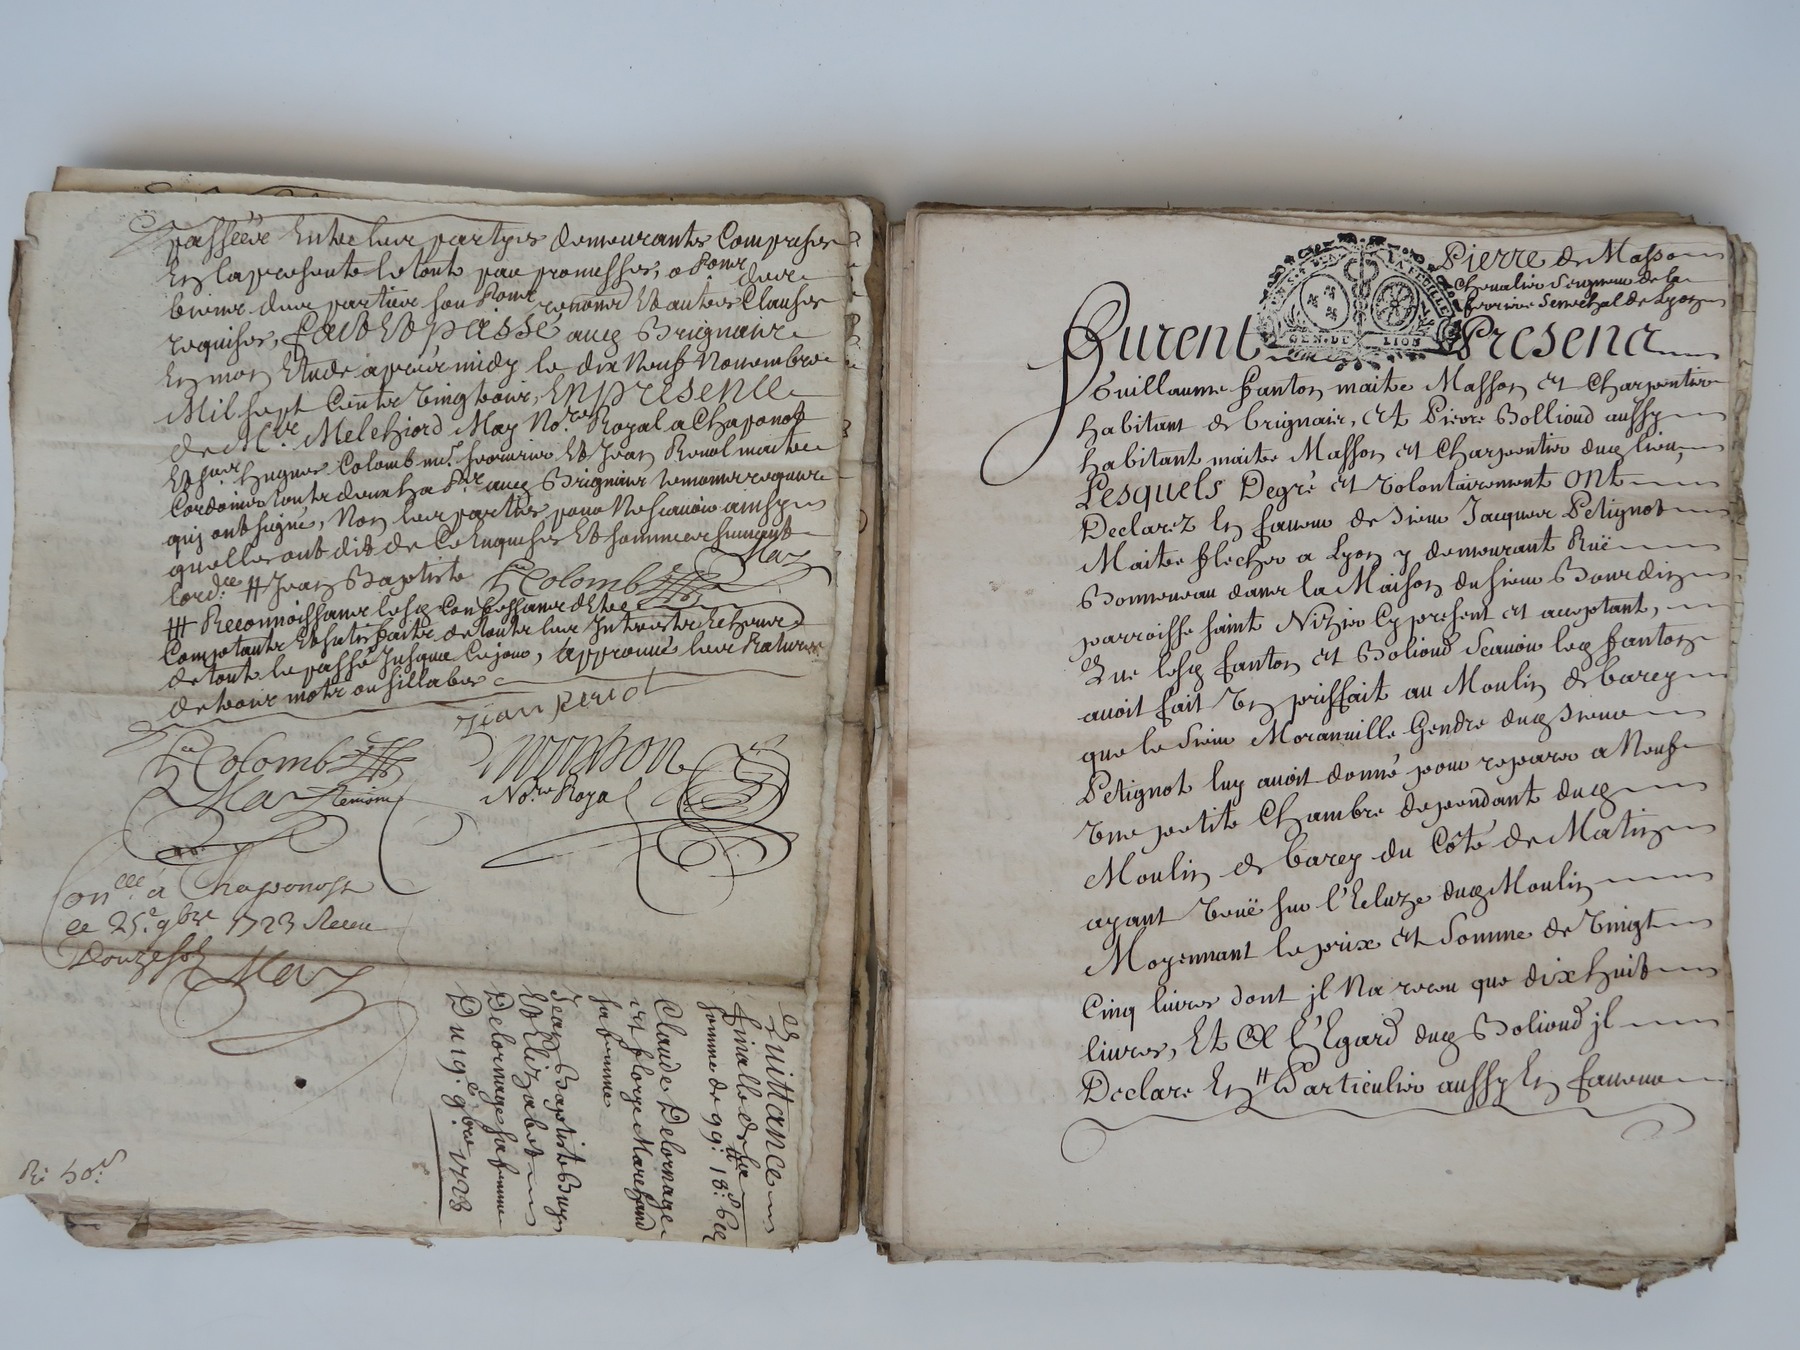 passée Entre les partyes demeurantes Comprises
En la presente le tout par promesses, o
biens des parties sou renond Et autres Clauses
requises, fait Et passé audq Brignaire
En mon Etude apres midy le dix Neuf Novembre
Mil sept Cents vingt trois, En presence
de Mre Melchiord May Nore Royal a Chaponost
Et sr hugues Colomb me serrurier Et Jean Renol maitre
Cordonier audq Brignais temoins requis
quj ont signé, Non les parties pour Ne scavoir ainsy
quelles ont dit de Ce Enquises Et sommees suivant
lordce # Jean Baptiste Colomb May
# Reconnoissance
Comptants Et satisfaits de touts leur Interests
de tout le passé Jusqua Ce jour, approuvé les Ratures
de trois mots ou sillabes
Jean
Colomb
May
Nore Royal
Conlle a Chaponost
ce 25e 9bre 1723 Receu
Douze sols
May
Quittance
finalle de la
somme de 99# 18s 6d
Claude Delornage
et florye Marchand
sa femme
Jean Baptiste
Et Elizabet
Delornage sa femme
Du 19e 9bre 1723
GEN. DE LION
Pierre de Masso
Chevalier Seigneur de la
ferriere Senechal de Lyon
Furent Presens
Guillaume fanton maitre Masson et Charpentier
habitant de brignais, et Pierre Bolliond aussy
habitant maitre Masson et Charpentier dudq lieu,
Lesquels Degré et volontairement ont
Declarez En faveur de Sieur Jacques Petignot
Maitre flecher a Lyon y demeurant Ruë
Bonneveau dans la Maison du sieur Bourdin
parroisse saint Nizier Cy present et acceptant,
Que lesq fanton et Boliond Scavoir leq fanton
avoit fait Un priffait au Moulin de barey
que le Sieur Moranville Gendre dudq Sieur
Petignot luy avoit donné pour reparer a Neuf
Une petite Chambre dependant dudq
Moulin de barey du Côté de Matin
ayant Veuë sur l'Ecluze dudq Moulin
Moyennant le prix et Somme de Vingt
Cinq livres dont jl Na receu que dix huit
livres, Et A l'Egard dudq Boliond jl
Declare En # Particulier aussy En faveur